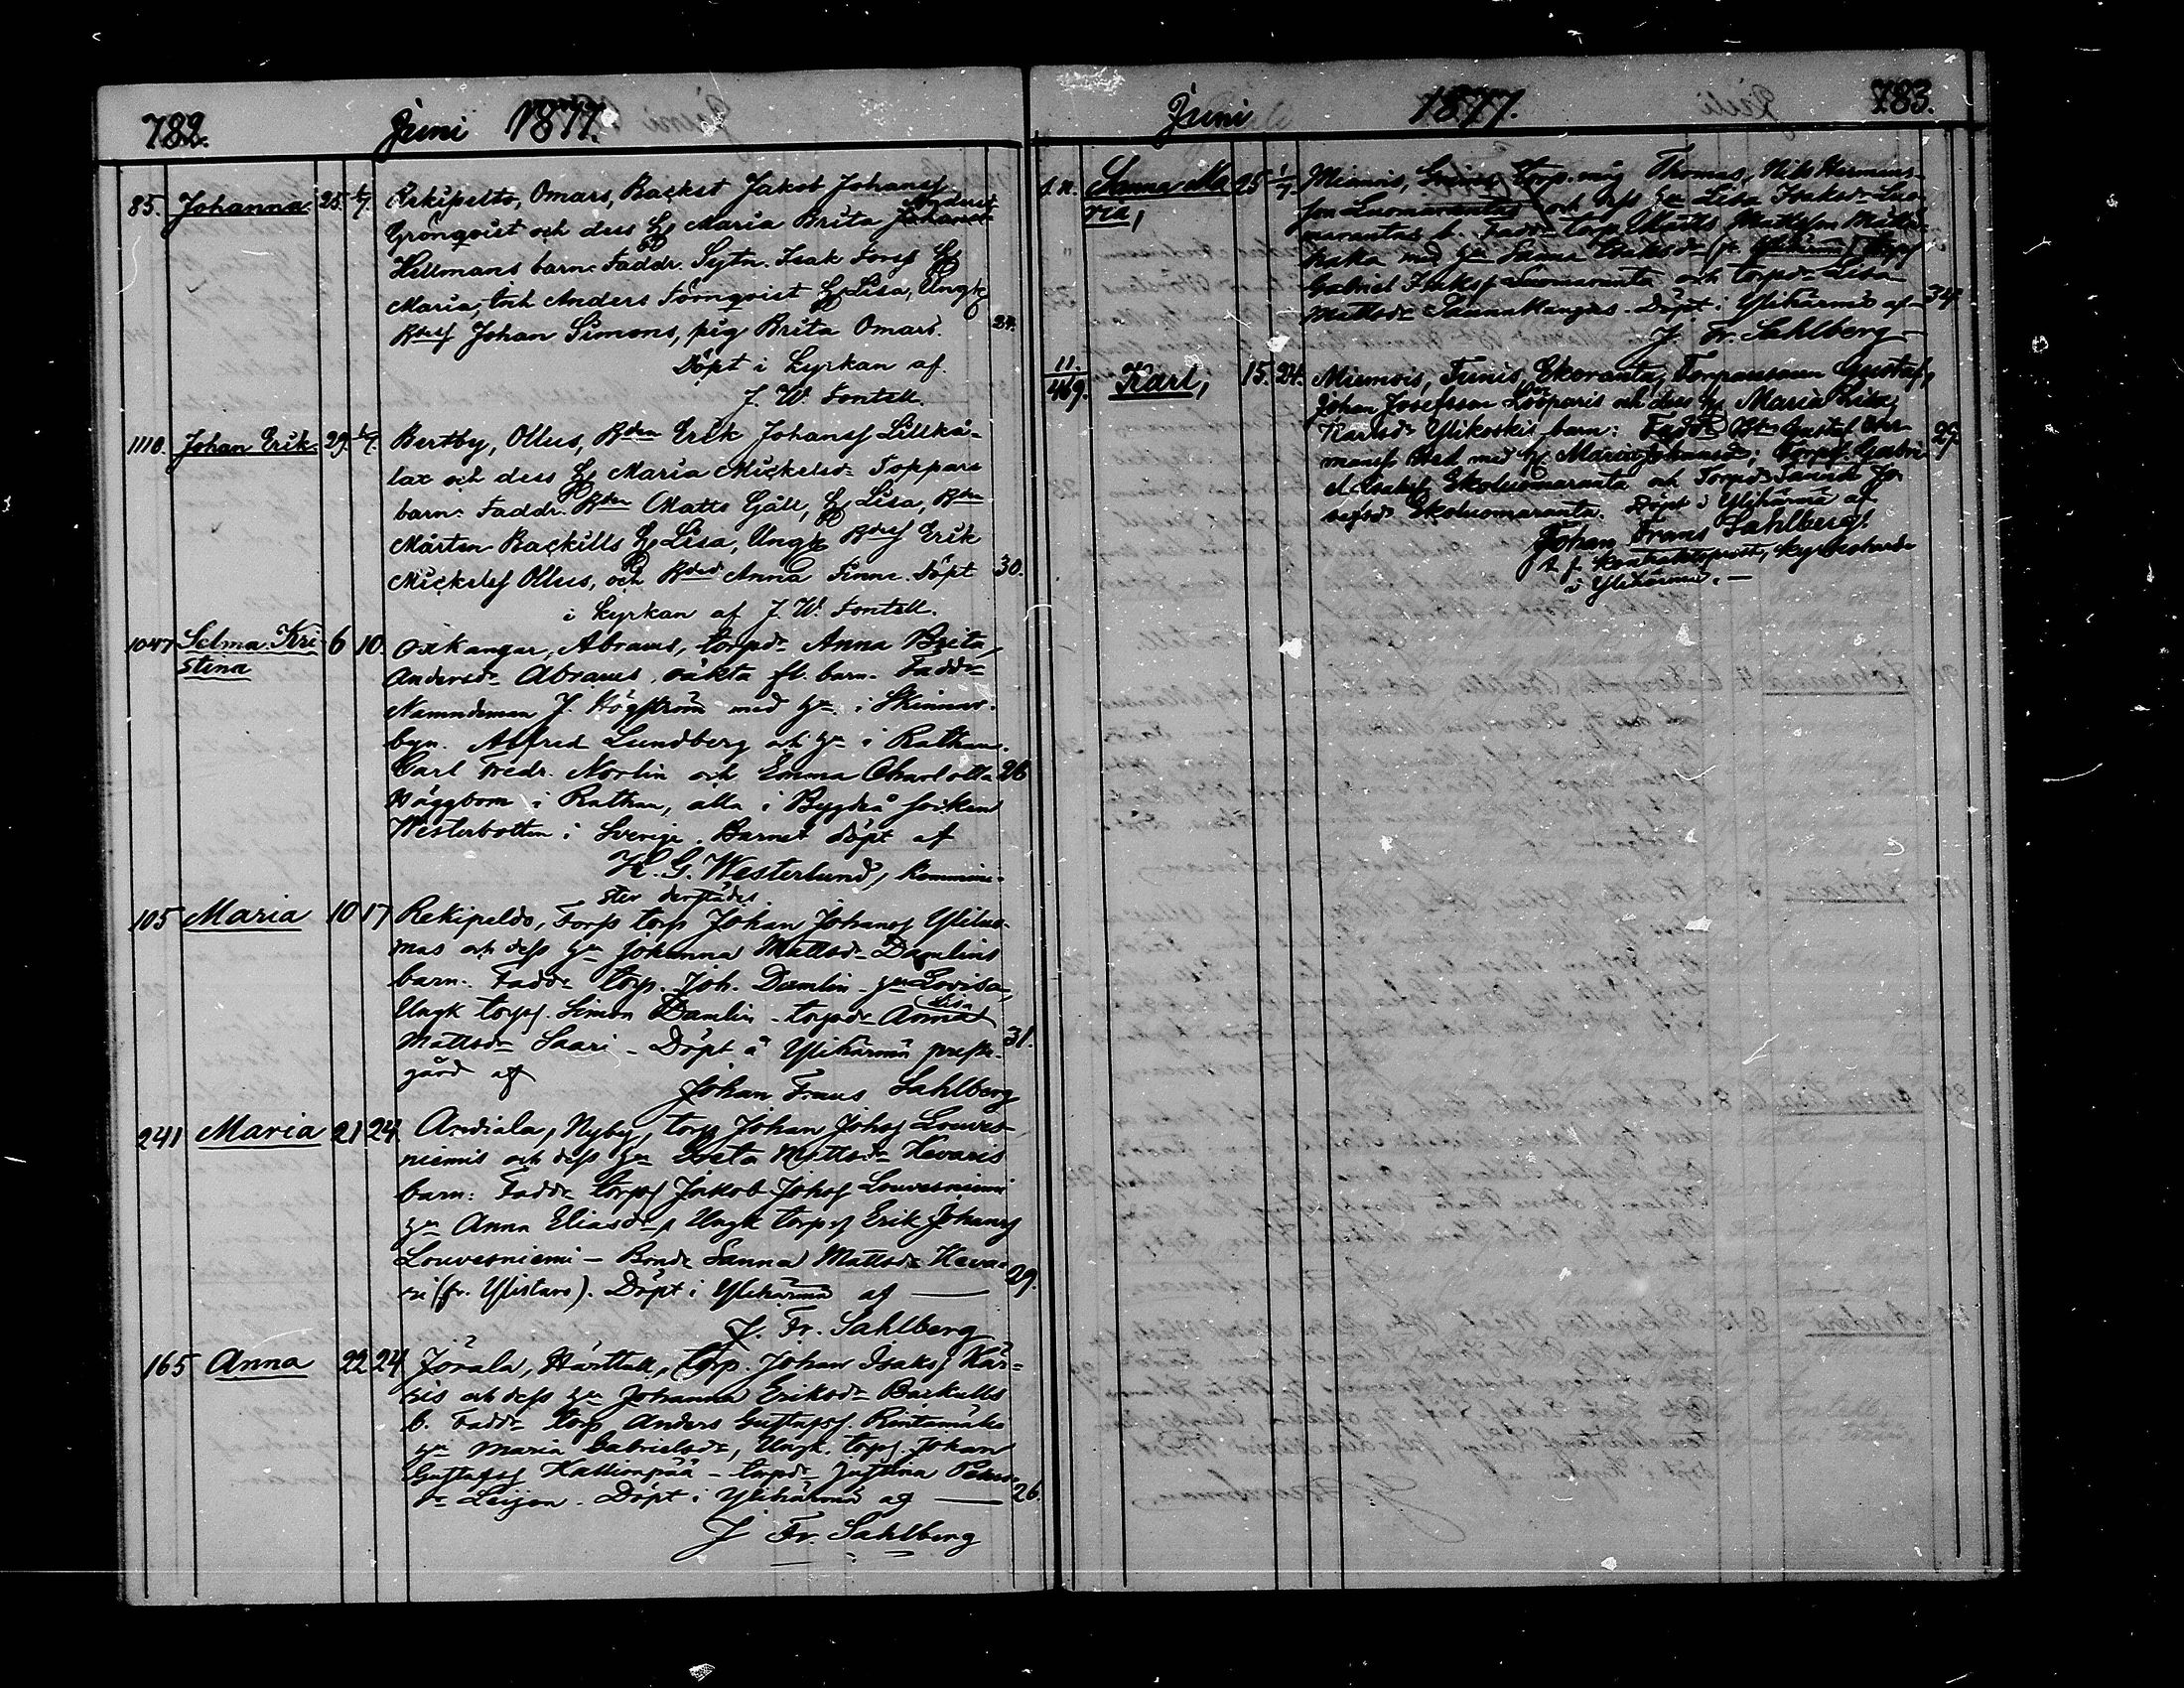 782. Juni 1877.
85. Johanna 25. 1/7. Rekipelto, Omars, Backst Jakob Johanss
Grönqvist och dess H. Maria Brita Johansd Andersd
Hellmans barn. Faddr. Sytn. Isak Forss H.
Maria, Inh Anders Törnqvist H. Lisa, Ungk
Bdes Johan Simons, pig Brita Omars. 24.
Döpt i kyrkan af
J. W. Fontell.
1110. Johan Erik 29. 1/7. Bertby, Ollus, Bden Erik Johanss Lillkå-
lax och dess H. Maria Mickelsdr Toppars
barn. Faddr. Bden Matts Gåll, H. Lisa, Bden
Mårten Backills H. Lisa, Ungk Bdes Erik
Mickelss Ollus, och Bdesd Anna Finne. Döpt 30.
i kyrkan af J. W. Fontell.
1047 Selma Kri- 6 10. Oxkangar, Abrams, torpdr Anna Brita
stina Andersdr Abrams, oäkta fl. barn. Faddr
Namndeman J. Högström med Hu i Skinnar-
byn. Alfred Lundberg och Hu i Rathan.
Carl Fredr. Norlin och Emma Charlotta 26
Häggbom i Rathan, alla i Bygdeå socken
Westerbotten i Sverige. Barnet döpt af
K. G. Westerlund, kommini-
ster derstädes.
105 Maria 10 17 Rekipeldo, Forss torp Johan Johanss Ylituo-
mas och dess Hu Johanna Mattsdr Damlins
barn. Faddr torp. Joh. Damlin - Hu Lovisa,
Ungk torps. Simon Damlin - torpdr Anna Lisa
Mattsdr Saari - Döpt å Ylihärmä prest- 31.
gård af
Johan Frans Sahlberg
241 Maria 21 24. Andiala, Nyby, torp Johan Johss Louves-
niemis och dess Hu Greta Mattsdr Kevaris
barn: Faddr torps Jakob Johss Louvesniemi
Hu Anna Eliasdr, Ungk torps Erik Johanss
Louvesniemi - Bondr Sanna Mattsdr Keva-
ri (fr. Ylistaro). Döpt i Ylihärmä af — 29.
J. Fr. Sahlberg
165 Anna 22 24 Jörala, Härttull, torp. Johan Isakss Kär-
nis och dess Hu Johanna Eriksdr Backulls
b. Faddr torp Anders Gustafss. Rintamäki
Hu Maria Gabrielsdr, Ungk. torps. Johan
Gustafss Kallionpää - torpdr Justina Peters-
dr Leijon. Döpt i Ylihärmä af — 26.
J Fr. Sahlberg
Juni 1877. 783.
s. n. Sanna Ma- 25 1/7. Miemois, torp.måg Thomas Nils Hermans-
ria, son Luomarantas och dess Hu Lisa Isaksdr Luo-
marantas b. Faddr torp Matts Mattsson
med Hu Sanna Isaksdr (fr Ylihärmä) torps
Gabriel Isakss Luomaranta och torpdr Lisa
Mattsdr Saunakangas. Döpt i Ylihärmä af — 34.
J. Fr. Sahlberg
11.
469. Karl, 15. 24. Miemois, Finnis, Ekoranta, Torparesonen Gustaf
Johan Josefsson Löfparis och dess H. Maria Lisa
Karlsdr Ylikoskis barn: Faddr Gustaf Her-
manss med H. Maria Johansdr; Torps. Gabri- 29.
el Isakss Ekoluomaranta och Torpdr Sanna Jo-
sefsdr Ekoluomaranta. Döpt i Ylihärmä af
Johan Frans Sahlberg.
t. f. kontraktsprost, kyrkoherde
i Ylihärmä. —